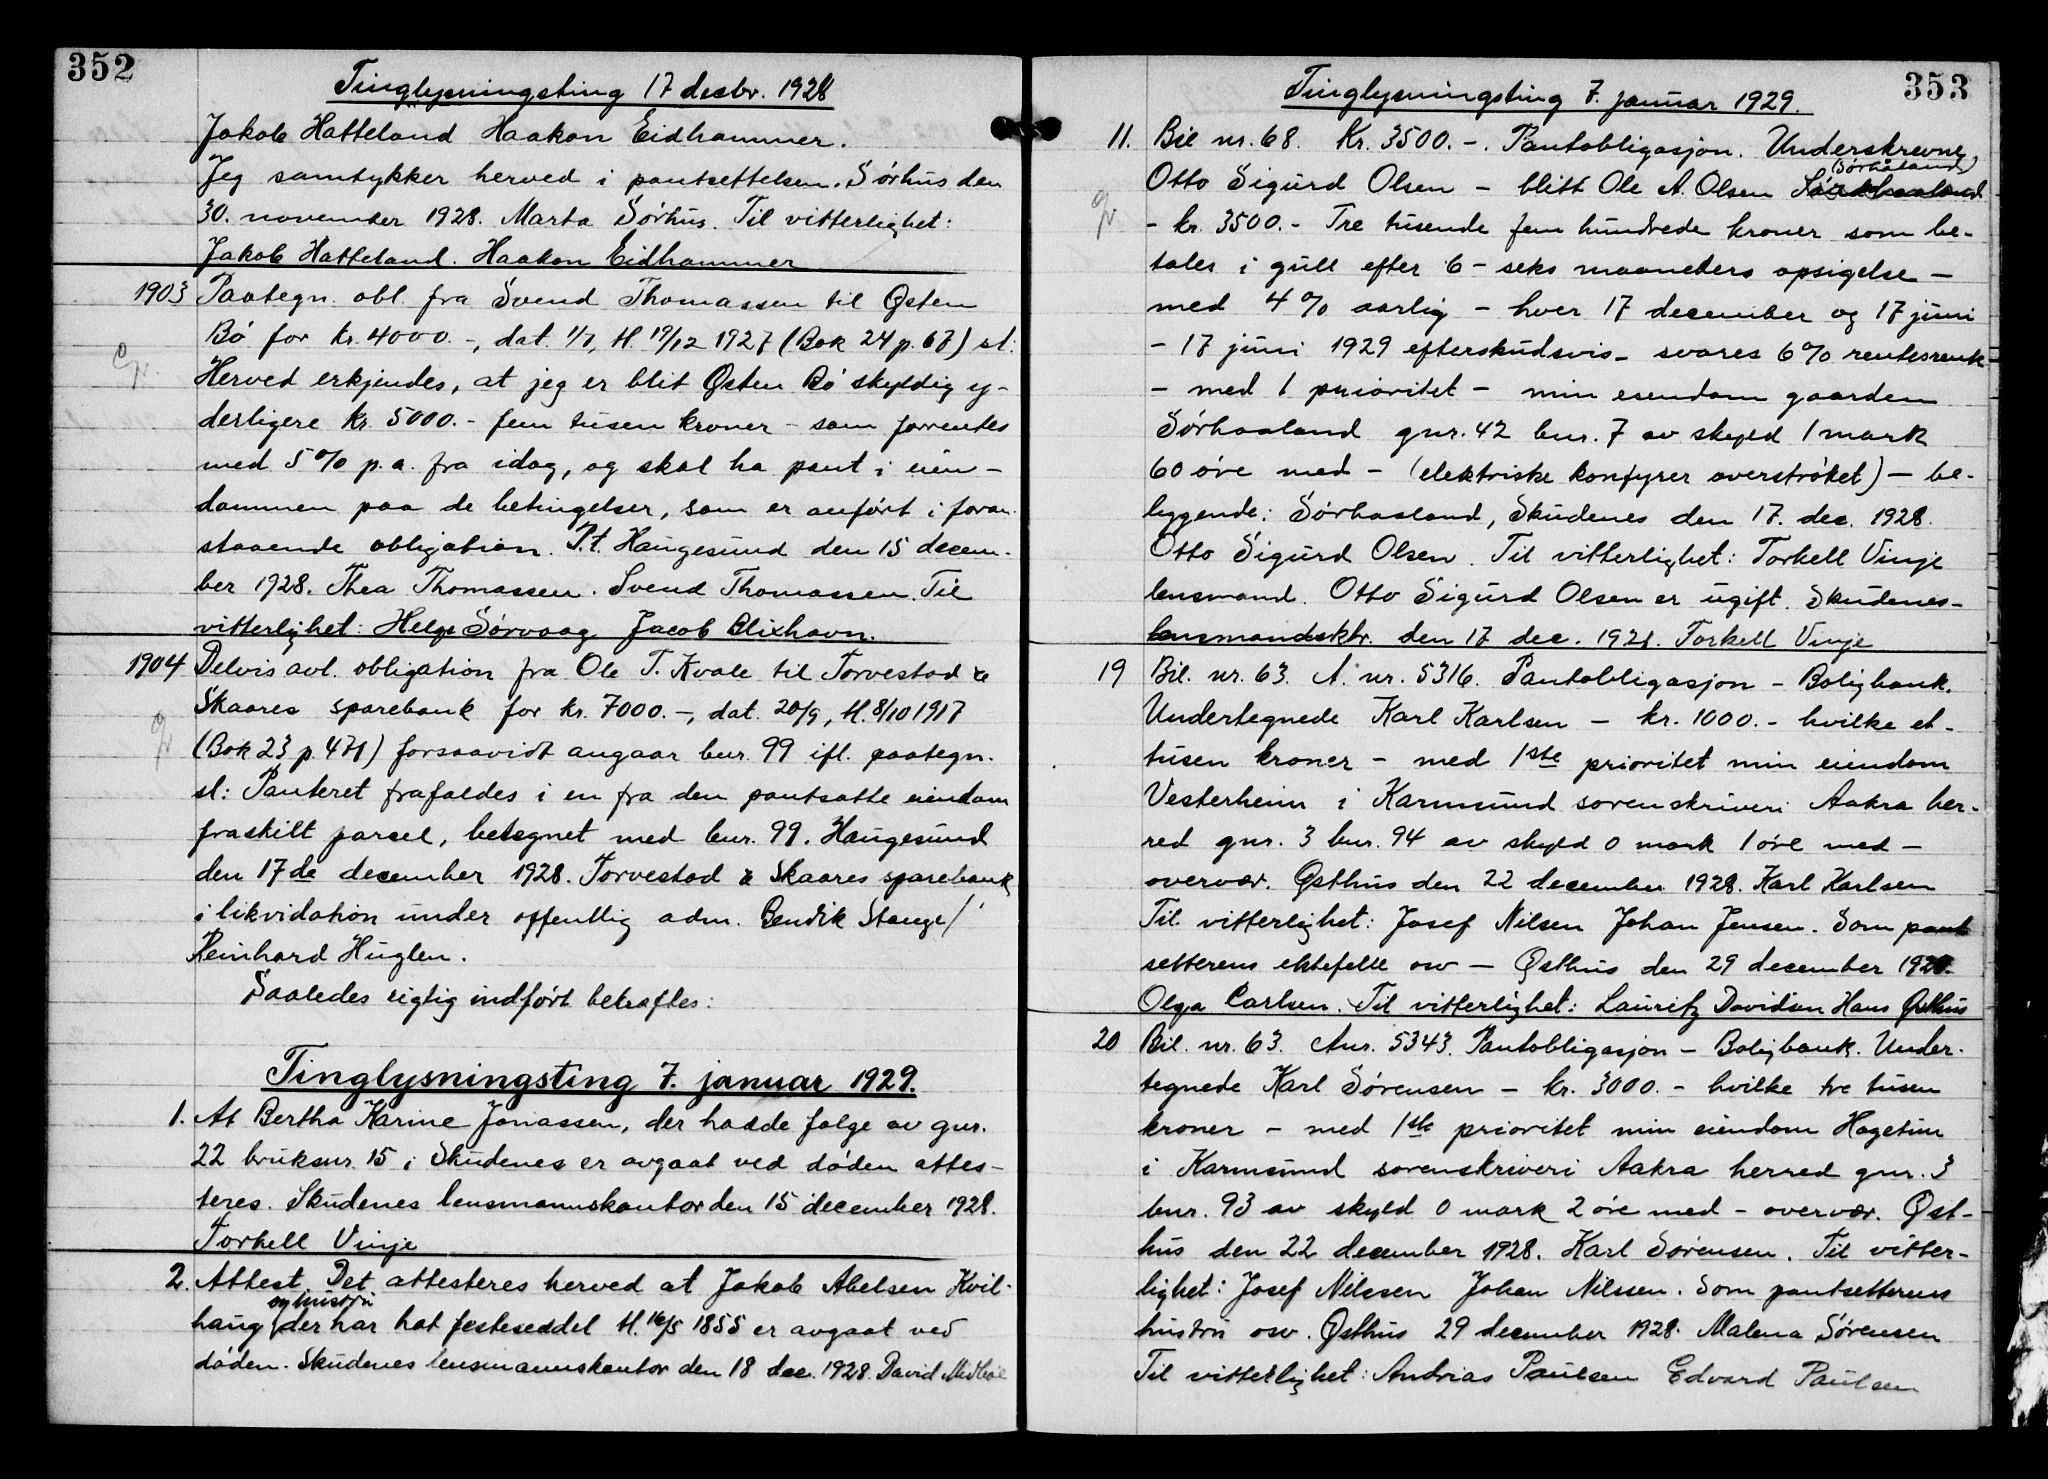 352
Tinglysningsting 17 desbr. 1928
Jakob Hatteland Haakon Eidhammer.
Jeg samtykker herved i pantsettelsen. Sörhus den
30. november 1928. Marta Sörhus. Til vitterlighet:
Jakob Hatteland. Haakon Eidhammer
1903 Paategn. obl. fra Svend Thomassen til Østen
Bö for kr. 4000.-, dat. 1/7, tl. 19/12 1927 (Bok 24 p. 67) sl:
Herved erkjendes, at jeg er blit Østen Bö skyldig y-
derligere kr. 5000.- fem tusen kroner - som forrentes
med 5% p.a. fra idag, og skal ha pant i eien-
dommen paa de betingelser, som er anfört i foran-
staaende obligation. P.t. Haugesund den 15 decem-
ber 1928. Thea Thomassen. Svend Thomassen. Til
vitterlighet: Helge Sörvaag Jacob Blixhavn.
1904 Delvis avl. obligation fra Ole T. Kvale til Torvestad &
Skaares sparebank for kr. 7000.-, dat. 20/9, tl. 8/10 1917
(Bok 23 p. 471) forsaavidt angaar bnr. 99 ifl. paategn.
sl: Panteret frafaldes i en fra den pantsatte eiendom
fraskilt parsel, betegnet med bnr. 99. Haugesund
den 17de december 1928. Torvestad & Skaares sparebank
i likvidation under offentlig adm. Bendik Stange/
Reinhard Huglen.
Saaledes rigtig indfört bekræftes:
Tinglysningsting 7. januar 1929.
1. At Bertha Karine Jonassen, der hadde folge av gnr.
22 bruksnr. 15 i Skudenes er avgaat ved döden attes-
teres. Skudenes lensmannskontor den 15 december 1928.
Torkell Vinje
2. Attest. Det attesteres herved at Jakob Abelsen Kvil-
og hustru
haug der har hat festeseddel tl. 16/5 1855 er avgaat ved
döden. Skudenes lensmannskontor den 18 dec. 1928. David Midböe
353
Tinglysningsting 7. januar 1929.
11. Bil nr. 68. Kr. 3500.-. Pantobligasjon. Underskrevne
(Sörhåland)
Otto Sigurd Olsen - blitt Ole A. Olsen
- kr. 3500.- Tre tusende fem hundrede kroner som be-
tales i gull efter 6 - seks maaneders opsigelse -
med 4% aarlig - hver 17 december og 17 juni
- 17 juni 1929 efterskudsvis - svares 6% rentesrenk
- med 1 prioritet - min eiendom gaarden
Sörhaaland gnr. 42 bnr. 7 av skyld 1 mark
60 öre med - (elektriske komfyrer overströket) - be-
liggende: Sörhaaland, Skudenes den 17. dec. 1928.
Otto Sigurd Olsen. Til vitterlighet: Torkell Vinje
lensmand. Otto Sigurd Olsen er ugift. Skudenes-
lensmandsktr. den 17 dec. 1928. Torkell Vinje
19 Bil. nr. 63. A. nr. 5316. Pantobligasjon - Boligbank.
Undertegnede Karl Karlsen - kr. 1000.- hvilke et-
tusen kroner - med 1ste prioritet min eiendom
Vesterheim i Karmsund sorenskriveri Aakra her-
red gnr. 3 bnr. 94 av skyld 0 mark 1 öre med -
overvær. Østhus den 22 december 1928. Karl Karlsen
Til vitterlighet: Josef Nilsen Johan Jensen. Som pant
setterens ektefelle osv - Østhus den 29 december 1928.
Olga Carlsen. Til vitterlighet: Lauritz Davidsen Hans Østhus
20 Bil. nr. 63. Anr. 5343. Pantobligasjon - Boligbank. Under-
tegnede Karl Sörensen - kr. 3000.- hvilke tre tusen
kroner - med 1ste prioritet min eiendom Hagetun
i Karmsund sorenskriveri Aakra herred gnr. 3
bnr. 93 av skyld 0 mark 2 öre med - overvær. Øst-
hus den 22 december 1928. Karl Sörensen. Til vitter-
lighet: Josef Nilssen Johan Nilssen. Som pantsetterens
hustru osv. Østhus 29 december 1928. Malena Sörensen
Til vitterlighet: Andrias Paulsen Edvard Paulsen